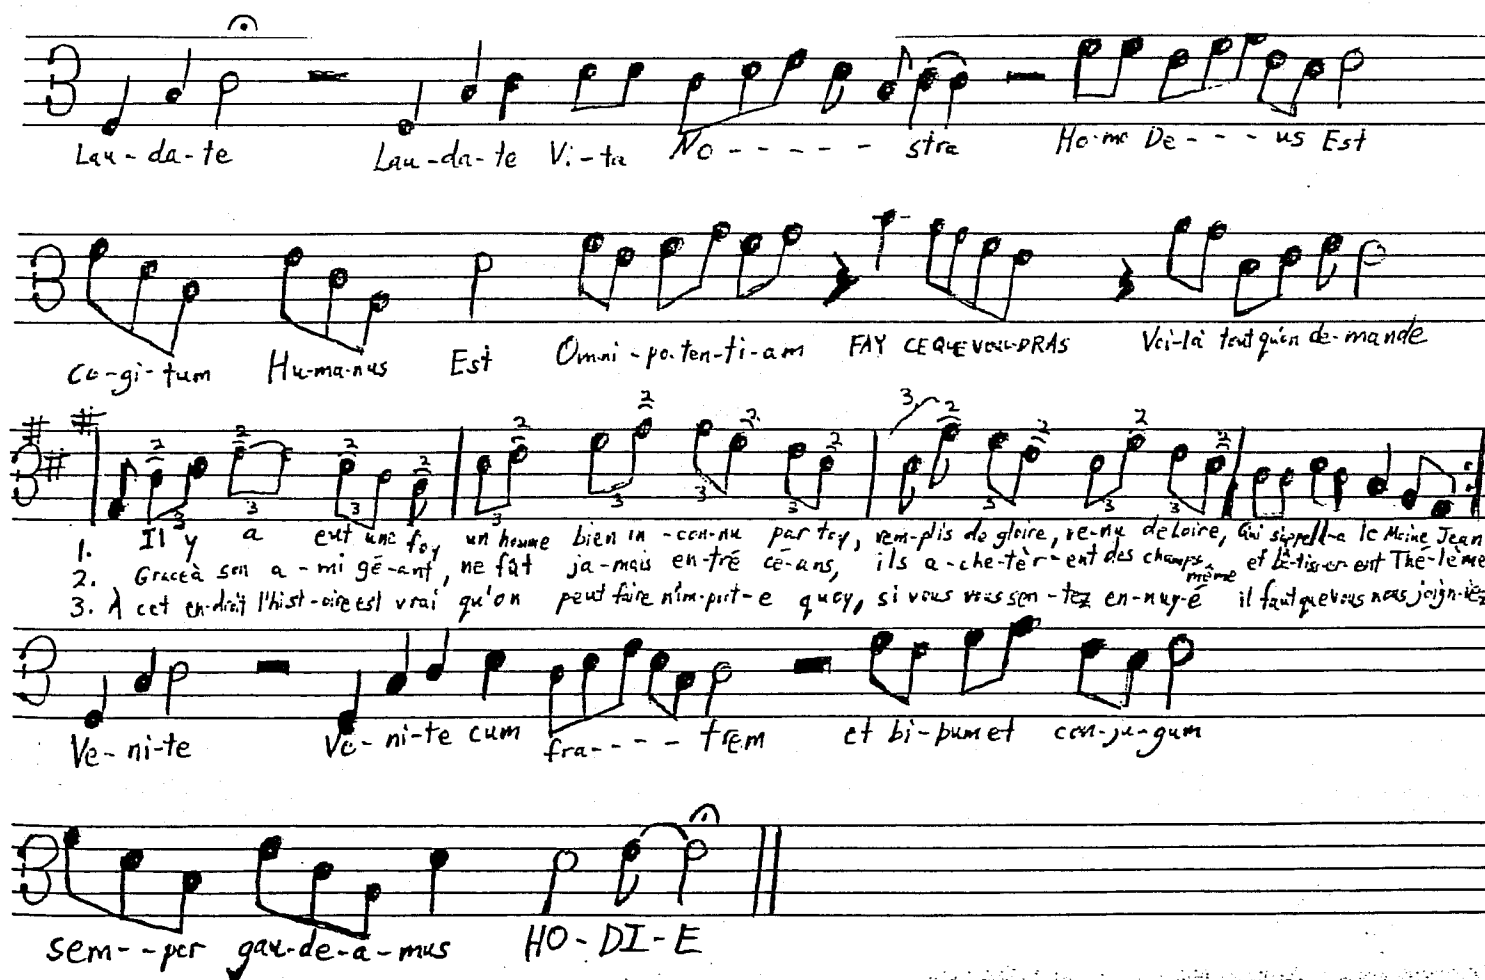 Lau-da-te Lau-da-te Vi-ta No----- stra Ho-mo De---us Est
Co-gi-tum Hu-ma-nus Est Omni-po-ten-ti-am FAY CE QUE VOUL-DRAS Voi-là tout qu'on de-mande
2 3 2 3 2 3 2 3 2 3 2 3 2 3 2 3 2 3 2 3 2
1. Il y a eut une foy un homme bien in-con-nu par toy, rem-plis de gloire, ve-nu de Loire, Qui s'appell-a le Moine Jean
2. Grace à son a-mi gé-ant, ne fût ja-mais en-tré cé-ans, ils a-che-tèr-ent des champs même et bê-tir-er-ent Thé-lème
3. À cet en-droit l'hist-oire est vrai qu'on peut faire n'im-port-e quoy, si vous vous sen-tez en-nuy-é il faut que vous nous joign-iez
Ve-ni-te Ve-ni-te cum fra---- trem et bi-pum et con-ju-gum
sem--per gau-de-a-mus HO-DI-E